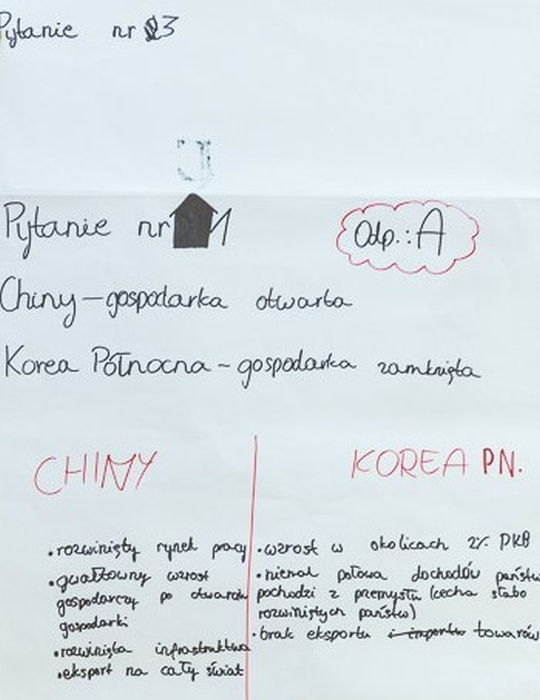 Pytanie nr 3
Pytanie nr 1
Odp.: A
Chiny – gospodarka otwarta
Korea Północna – gospodarka zamknięta
CHINY
KOREA PN.
• rozwinięty rynek pracy
• gwałtowny wzrost
gospodarczy po otwarciu
gospodarki
• rozwinięta infrastruktura
• eksport na cały świat
• wzrost w okolicach 2% PKB
• niemal połowa dochodów państw
pochodzi z przemysłu (cecha słabo
rozwiniętych państw)
• brak eksportu i importu towarów